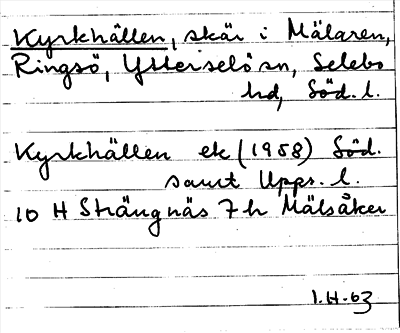 Kyrkhällen, skär i Mälaren,
Ringsö, Ytterselö sn, Selebo
hd, Söd. l.
Kyrkhällen ek (1958) Söd.
samt Upps. l.
10 H Strängnäs 7 h Mälsåker
I.H.-63